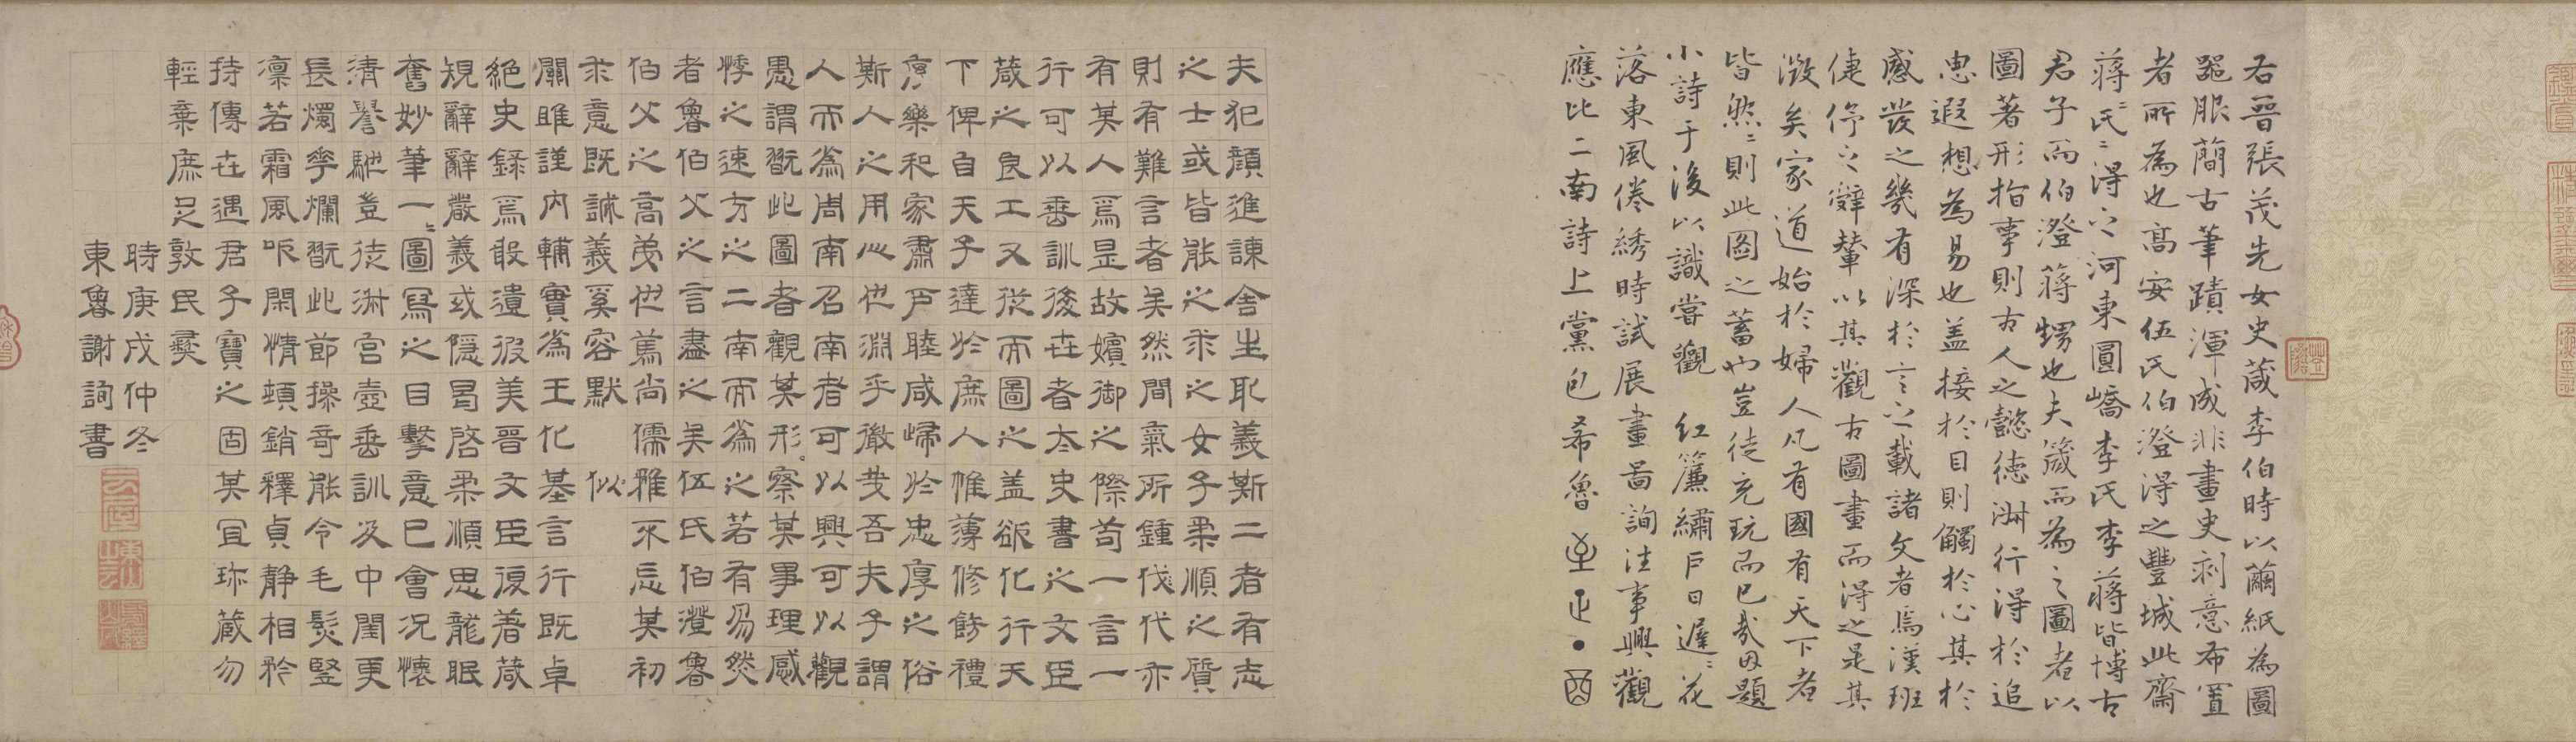 右晉張茂先女史葴李伯時以繭紙為圖
器服簡古筆蹟渾成非畫史刻意布置
者所為也高安伍氏伯澄得之豐城此齋
蔣〻氏〻得之河東圓嶠李氏李蔣皆博古
君子而伯澄蔣甥也夫箴而為之圖者以
圖著形指事則古人之懿德淋行得於追
思遐想為易也盖接於目則觸於心其於
感發之幾有深於言之載諸文者焉漢班
倢伃之辭輦以其觀古圖畫而得之是其
徵矣家道始於婦人凡有國有天下者
皆然〻則此圖之蓄也豈徒充玩而已哉因題
小詩于後以識嘗觀 紅簾繡戶日遲〻花
落東風倦綉時試展畫啚詢往事興觀
應比二南詩上黨包希魯
夫犯顏進諫舍生取義斯二者有志
之士或皆能之求之女子柔順之質
則有難言者矣然間氣所鍾伐代亦
有其人焉昰故嬪御之際苟一言一
行可以垂訓後世者太史書之文臣
葴之良工又從而圖之盖欲化行天
下俾自天子達於庶人帷薄修飭禮
序樂和家肅戸睦咸歸於忠厚之俗
斯人之用心也淵乎徹㦲吾夫子謂
人而為周南召南者可以興可以觀
愚謂翫此圖者觀其形察其事理感
悸之速方之二南而為之若有易然
者魯伯父之言盡之矣伍氏伯澄魯
伯父之高苐也篤尚儒雅不忘其初
求意既誠義奚容默 以
關雎謹內輔實為王化基言行既卓
絕史錄焉敢遺彼美晉文臣復著葴
規辭辭嚴義或隱冐啓柔順思龍眠
奮妙筆一〻圖寫之目擊意已會況懷
清譽馳豈徒淋宮壼垂訓及中閨更
長燭華爛翫此節操奇能令毛髮豎
凜若霜風吹閑情頓銷釋貞静相矜
持傳世遇君子寶之固其宜珎葴勿
輕棄庶足敦民彜
時庚戌仲冬
東魯謝詢書